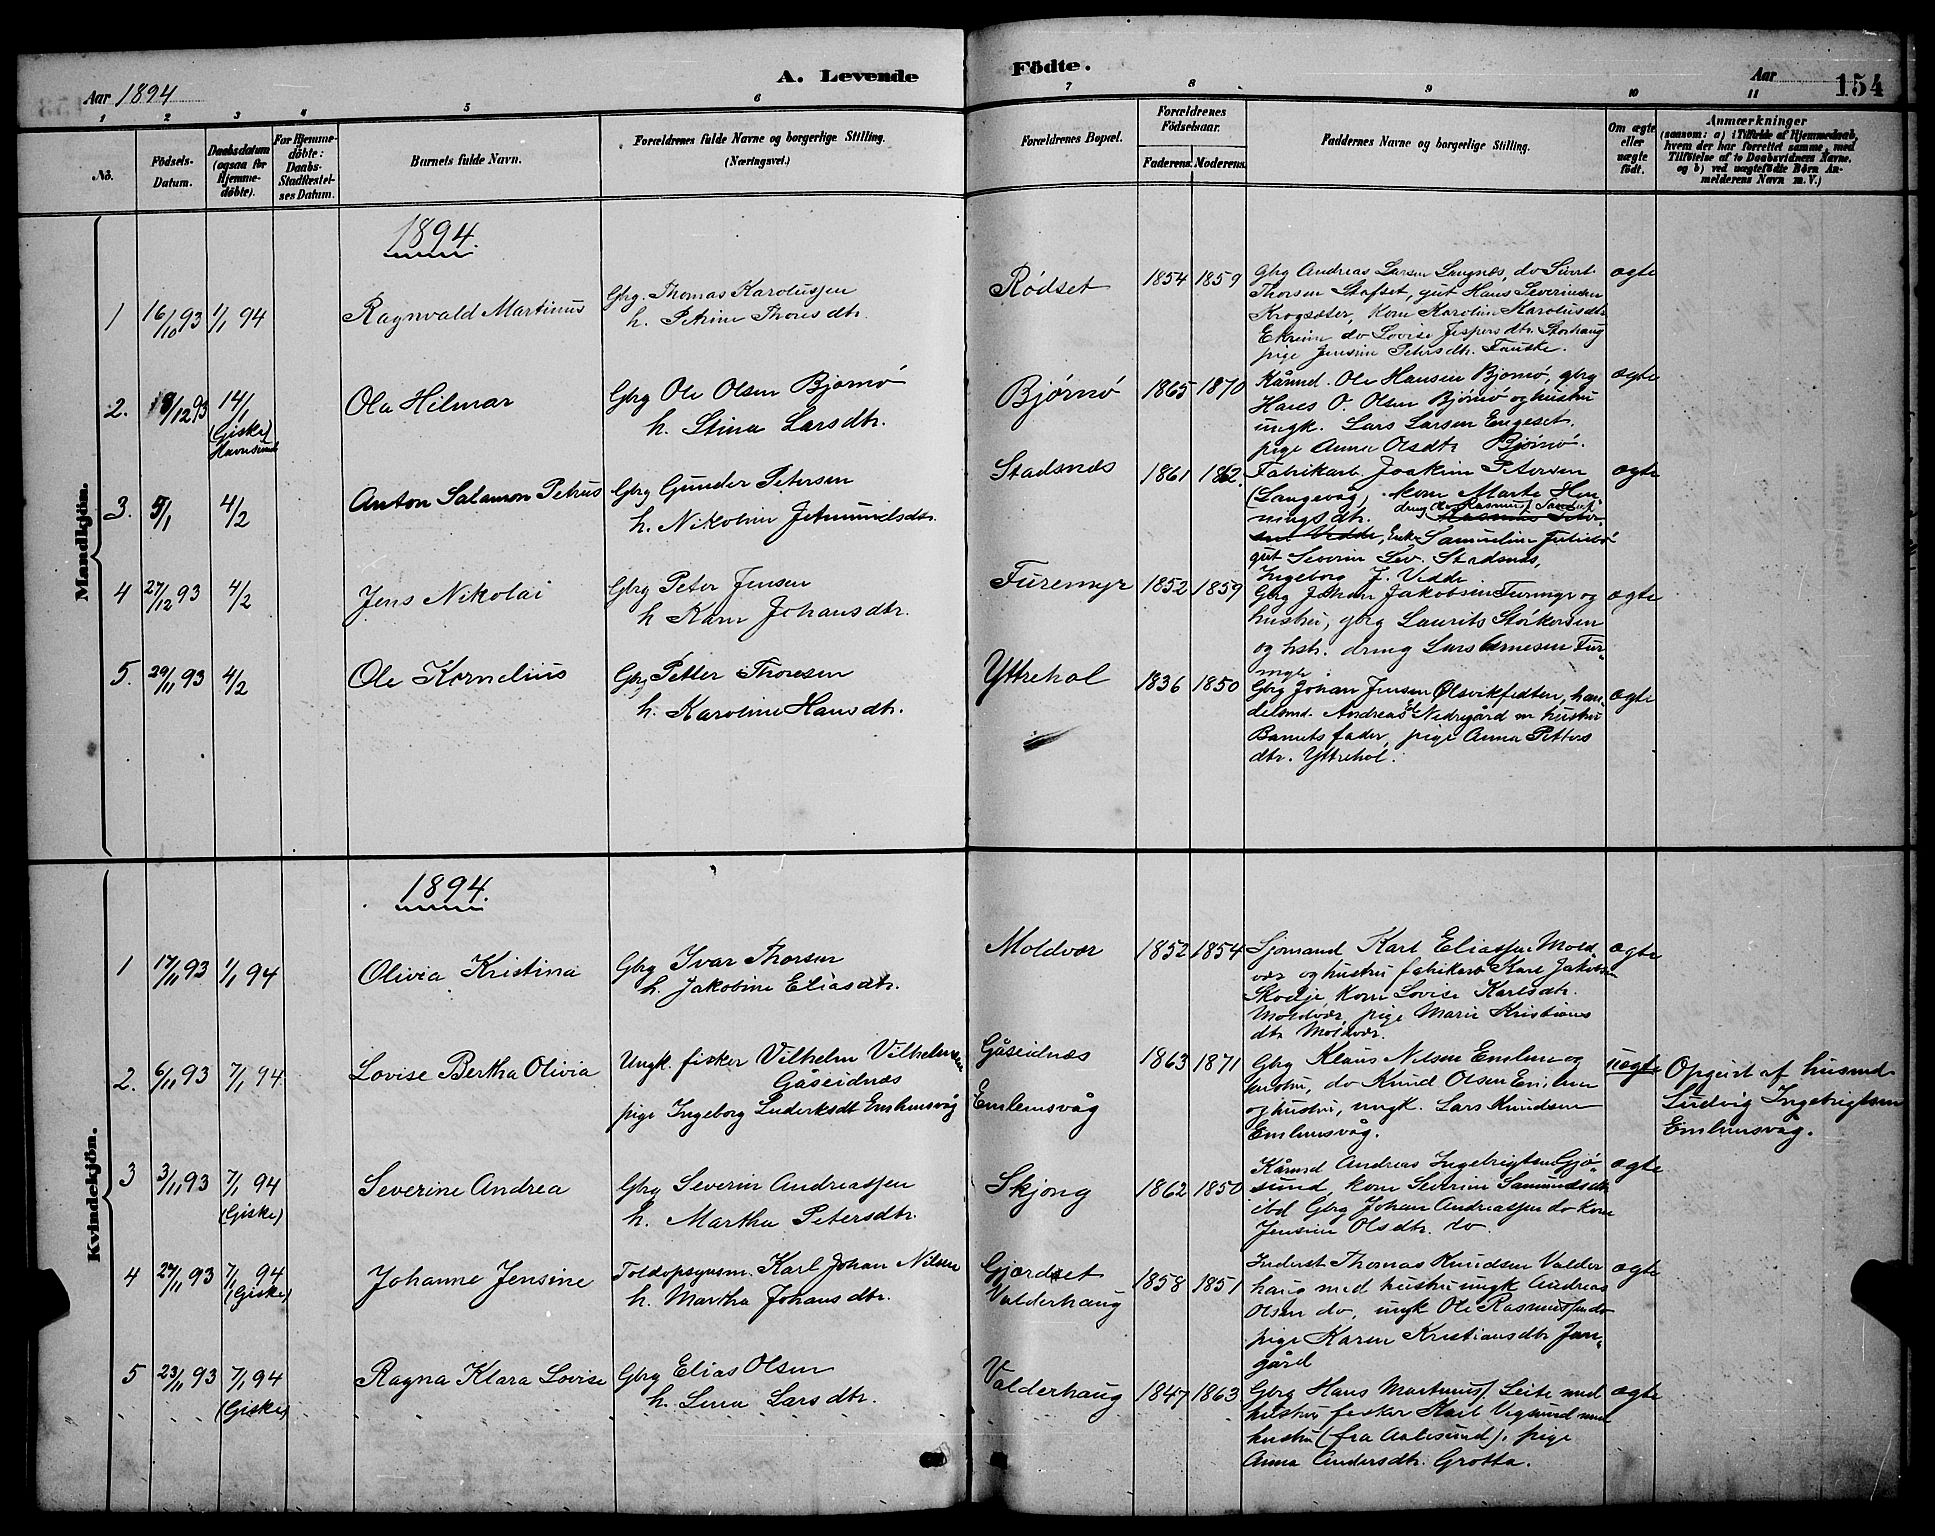 A. Levende
Födte.
Aar 1894
Aar
154
1
2
3
4
5
6
7
8
9
10
11
Nô.
Födsels-
Datum.
Daabsdatum
(ogsaa for
Hjemme-
döbte).
For Hjemme-
döbte:
Daabs-
Stadfæstel-
ses Datum.
Barnets fulde Navn.
Forældrenes fulde Navne og borgerlige Stilling.
(Næringsvei.)
Forældrenes Bopæl.
Forældrenes
Födselsaar.
Faderens.
Moderens.
Faddernes Navne og borgerlige Stilling.
Om ægte
eller
uægte
født.
Anmærkninger
(saasom: a) i Tilfælde af Hjemmedaab,
hvem der har forrettet samme, med
Tilföielse af to Daabsvidners Navne,
og b) ved uægtefødte Börn An-
melderens Navn m. V.)
Mandkjön.
1894.
1
16/10 93
1/1 94
Ragnvald Martinus
Gbrg. Thomas Karolussen
h. Petrine Thoresdtr.
Rødset
1854
1859
Gbrg Andreas Larsen Langnæs, do Sivert
Thorsen Stafset, gut Hans Severinsen
Krogsæter, kone Karoline Karolusdtr
Ekrem do Lovise Jespersdtr. Storhaug
pige Jensine Petersdtr. Fauske.
ægte
2.
/12 93
14/1
(Giske)
Havnsund
Ola Hilmar
Gbrg Ole Olsen Bjørnø
h. Stina Larsdtr.
Bjørnø
1865
1870
Kårmd. Ole Hansen Bjørnø, gbrg
Hans O. Olsen Bjørnø og hustru
ungk. Lars Larsen Engeset.
pige Anna Olsdtr Bjørnø.
ægte
3.
5/1
4/2
Anton Salamon Petrus
Gbrg Gunder Petersen
h. Nikoline Jetmundsdtr.
Stadsnæs
1861
1862.
Fabrikarb. Joakim Petersen
(Langevåg), kone Marte Hen-
ningsdtr.
gut Severin Sev. Stadsnæs,
Ingeborg J. Vedde
ægte
4
27/12 93
4/2
Jens Nikolai
Gbrg Peter Jensen
h Karn Johansdtr.
Furemyr
1852
1859
Gbrg Johan Jakobsen Furmyr og
hustru, gbrg Laurits Størkersen
og hstr. dreng Lars Arnesen Fur-
myr.
ægte
5.
29/11 93
4/2
Ole Kornelius
Gbrg Petter Thoresen
h. Karoline Hansdtr.
Yttrehol
1836
1850
Gbrg Johan Jensen Ølsvikfedten, han-
delsmd. Andreas Nedregård m hustru
Barnets fader, pige Anna Petters
dtr. Yttrehol.
ægte
Kvindekjön.
1894.
1
17/11 93
1/1 94
Olivia Kristina
Gbrg Ivar Thorsen
h. Jakobine Eliasdtr.
Moldvær
1852
1854
Sjømand Karl Eliassen Mold
vær og hustru fabrikarb Karl Jakobs
Skodje, kone Lovise Karlsdtr.
Moldvær, pige Marie Kristians
dtr Moldvær.
ægte
2.
6/11 93
7/1 94
Lovise Bertha Olivia
Ungk. fisker Vilhelm Vilhelmsen
Gåseidnæs
pige Ingeborg Luderksdt Emlemsvåg
Gåseidnæs
Emlemsvåg
1863
1871
Gbrg Klaus Nilsen Emlem og
hustru, do Knud Olsen Emlem
og hustru, ungk. Lars Knudsen
Emlemsvåg.
uægte
Opgivet af husmd
Ludvig Ingebrigtsen
Emlemsvåg.
3
3/11 93
7/1 94
(Giske)
Severine Andrea
Gbrg Severin Andreassen
h. Martha Petersdtr.
Skjong
1862
1850
Kårmd Andreas Ingebrigtsen Gjø-
sund, kone Severine Samundsdtr
ibd Gbrg Johan Andreassen do kone
Jensine Olsdtr. do.
ægte
4
27/11 93
7/1 94
(Giske)
Johanne Jensine
Toldopsynsm. Karl Johan Nilsen
h. Martha Johansdtr.
Gjærdset
Valderhaug
1858
1851
Inderst Thomas Knudsen Valder
haug med hustru ungk Andreas
Olsen do, ungk Ole Rasmussen do
pige Karen Kristiansdtr Jan-
gård
ægte
5
23/11 93
7/1 94
(Giske)
Ragna Klara Lovise
Gbrg Elias Olsen
h. Lina Larsdtr.
Valderhaug
1847
1863
Gbrg Hans Martinus Leite med
hustru fisker Karl Vigsund med
hustru (fra Aalesund), pige
Anna Andersdtr. Grotta.
ægte